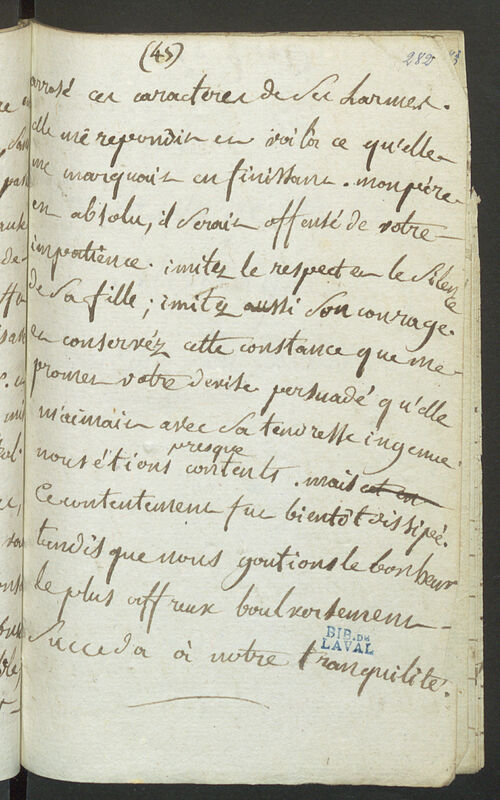 (45)
282
arrosé ces caracteres de ses larmes.
elle me repondit et voila ce qu'elle
me marquait en finissant. mon pére
est absolu, il serait offensé de votre
impatience. imitez le respect et le silence
de sa fille; imitez aussi son courage.
et conservéz cette constance que me
promet votre devise persuadé qu'elle
m'aimait avec sa tendresse ingenue.
presque
nous étions contents. mais cet en
Ce contentement fut bientôt dissipé.
tandis que nous goutions le bonheur
le plus affreux boulversement
succeda à notre tranquilité.
BIB. DE
LAVAL